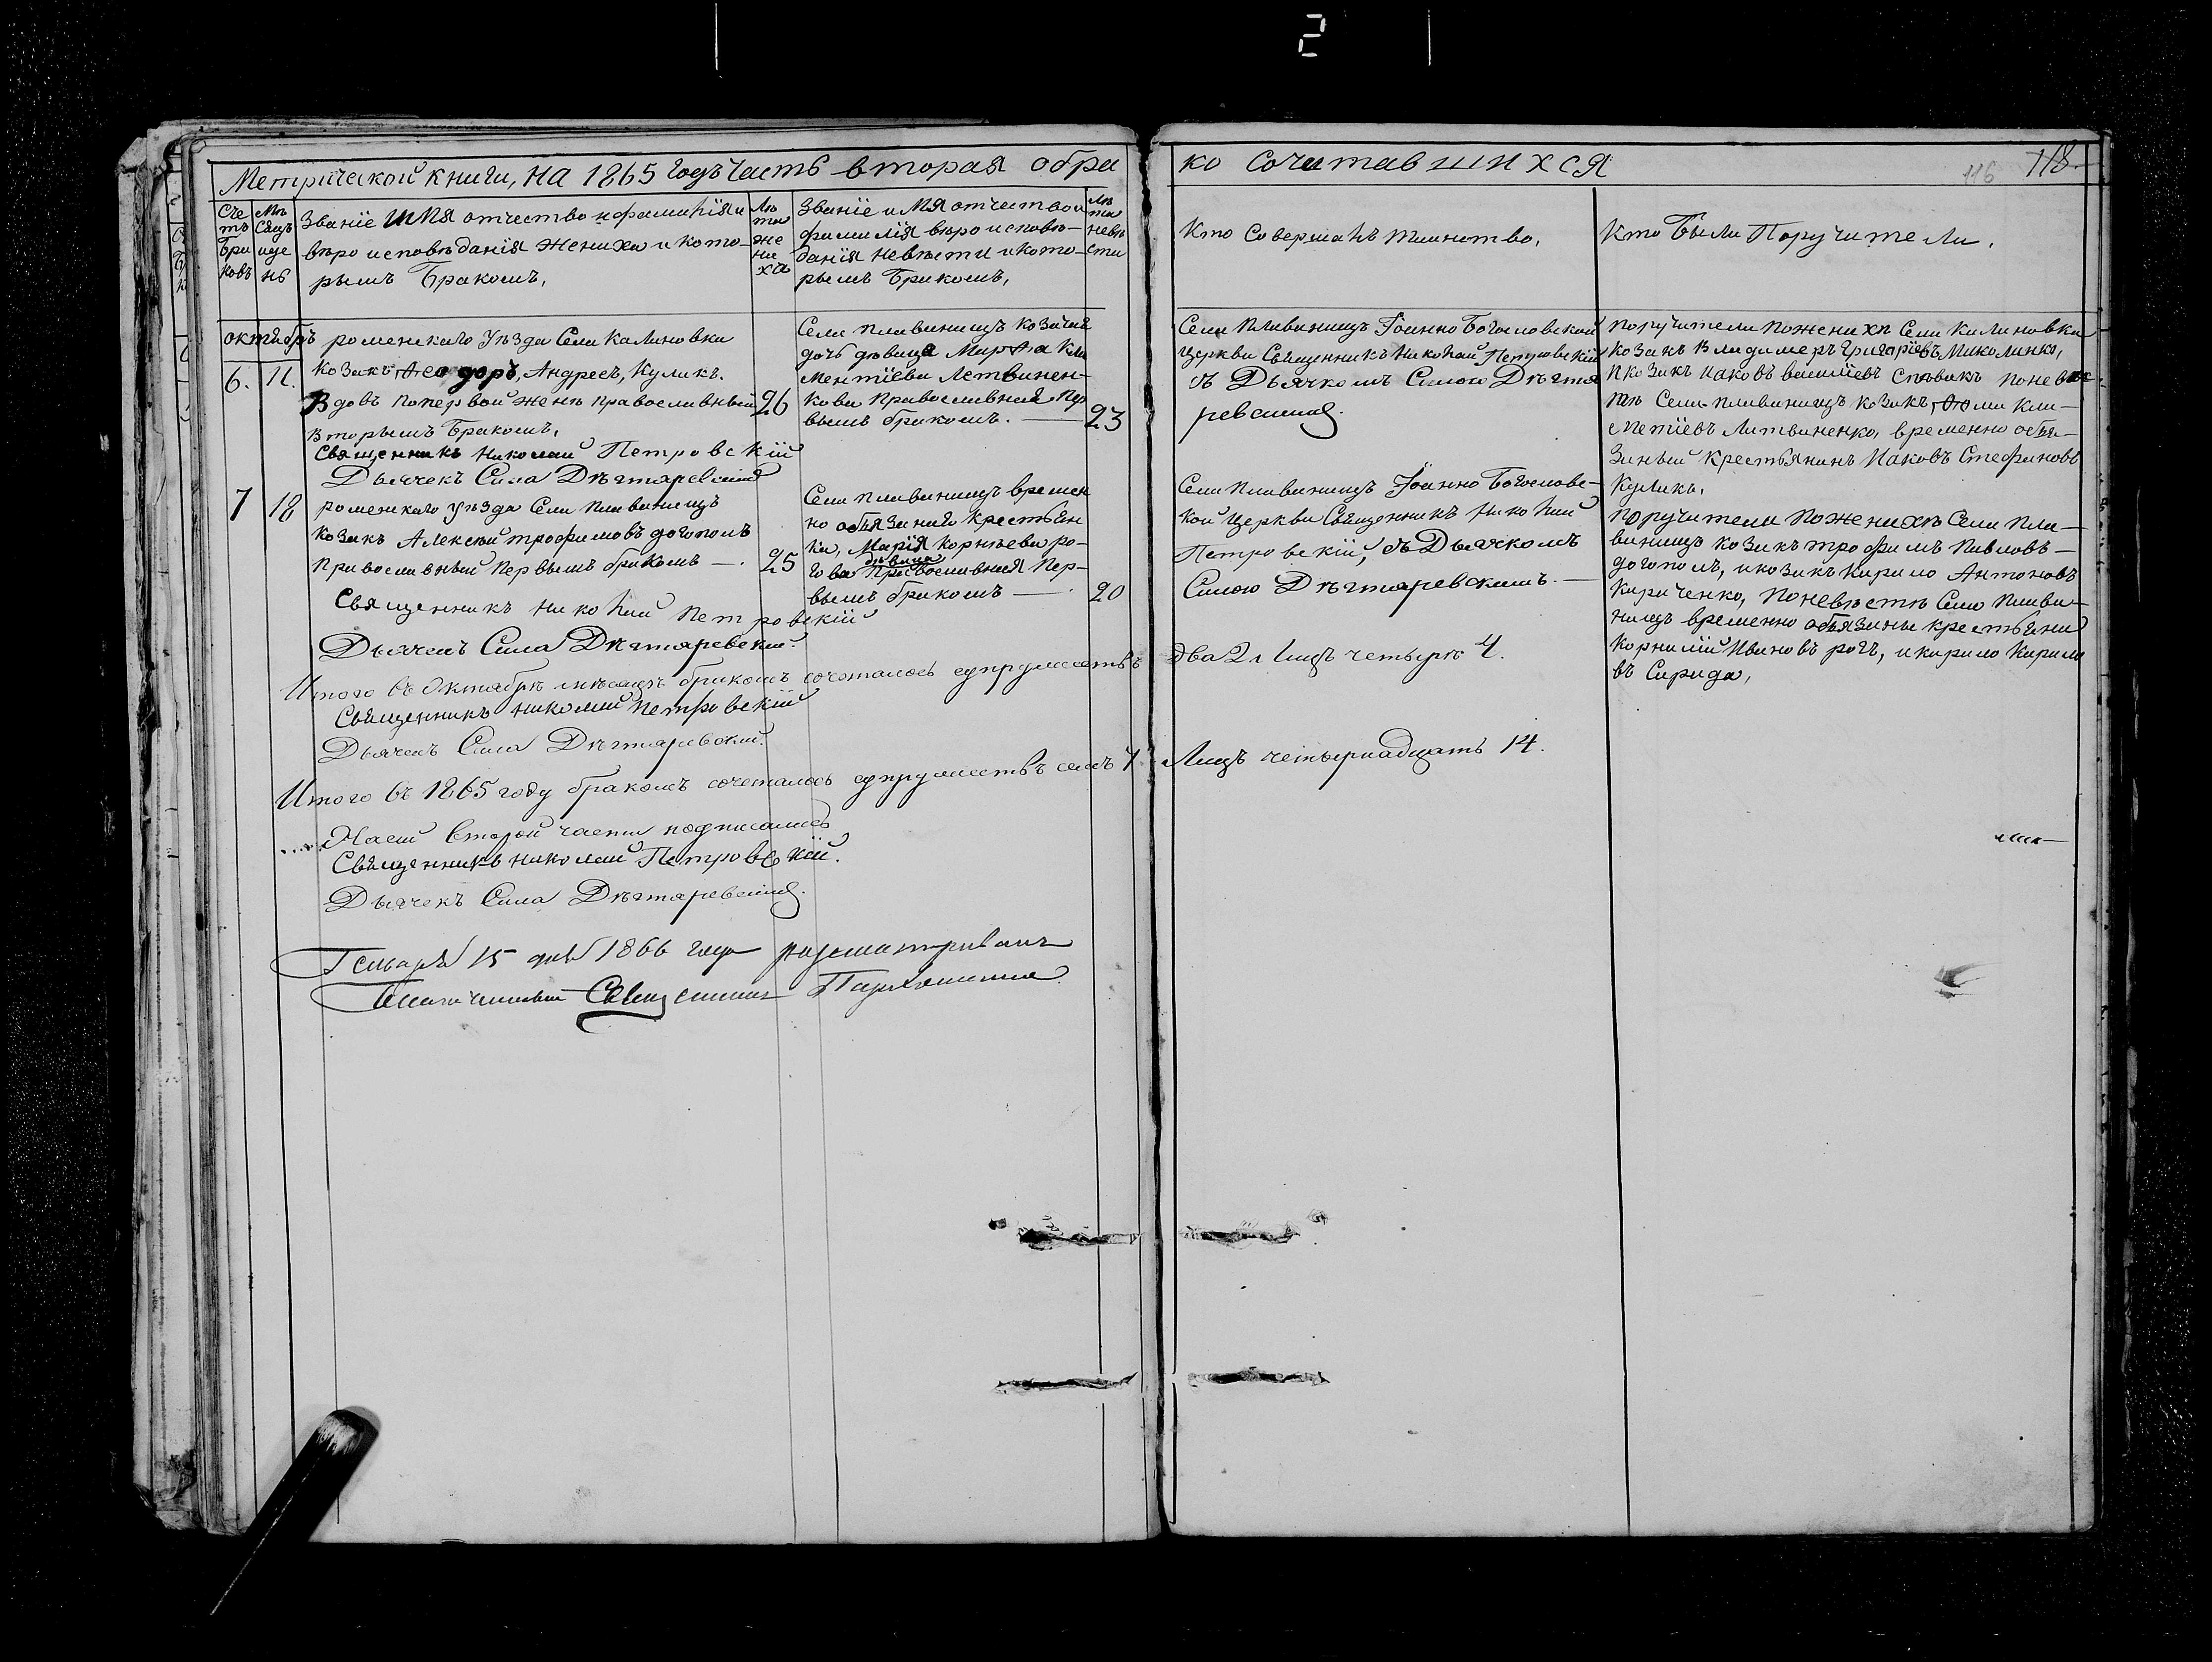 2
Метрической книги, на 1865 годъ Часть вторая о бра
ко сочитавшихся
116 118.
Сче
тъ
Бра
ковъ
Мѣ
сяцъ
и де
нь
Званіе имя отчество и фамилія и
вѣроисповѣданія Жениха и кото-
рымъ Бракомъ,
Лѣ
та
же
ни
ха
Званіе и Мя отчество и
фамилія вѣроисповѣ-
данія невѣсти и кото-
рымъ Бракомъ,
Лѣ
та
невѣ
сти
Кто Совершалъ таинство,
Кто Были Поручители,
октябрь
6. 11.
роменскаго Уѣзда Села Калиновки
Козакъ Ѳеодоръ, Андреевъ, Куликъ.
Вдовъ по первой женѣ православный
вторымъ Бракомъ,
26
Священникъ Николай Петровскій
Дьячекъ Сила Дѣгтяревскій
Села Плавинищъ козачая
дочь дѣвица Марѳа Кли
ментіева Летвинен-
кова Православная Пер
вымъ бракомъ. —
23
Села Плавинищъ Іоанно Богословской
Церкви Священникъ Николай Петровскій
съ Дьячкомъ Силою Дѣгтя
ревскимъ.
Поручители по женихѣ Села Калиновки
Козакъ Владимеръ Григоріевъ Миколенко,
и козакъ Иаковъ Василіевъ Спѣвакъ по невѣс-
тѣ Села Плавинищъ козакъ, Ѳома Кли-
ментіевъ Литвиненко, временно обя-
заный крестьянинъ Иаковъ Стефановъ
Куликъ.
7 18
роменскаго уѣзда Села Плавинищъ
козакъ Алексѣй трофимовъ доготолъ
православный первымъ бракомъ —.
25
Священникъ Николай Петровскій
Дьячекъ Сила Дѣгтяревскій.
Села Плавинищъ времен
но обязанаго крестьян
ка, Марія Корнѣева ро-
дѣвица
гова Православная Пер-
вымъ бракомъ —.
20
Села Плавинищъ Іоанно Богословс-
кой Церкви Священникъ Николай
Петровскій, съ Дьячкомъ
Силою Дѣгтяревскимъ. —
Поручители по женихѣ Села Пла-
винищъ козакъ трофимъ Павловъ —
доготолъ, и козакъ Кирило Антоновъ
Кириченко, по невѣстѣ Села Плави-
нищъ временно обязаны крестьяни
Корнилій Ивановъ рогъ, и кирило Кирило
въ Сирида,
Итого въ Октябрѣ мѣсяцѣ бракомъ сочеталось супружествъ два 2 Лицъ четыре 4.
Священникъ Николай Петровскій
Дьячекъ Сила Дѣгтяревскій.
Итого въ 1865 году бракомъ сочеталось супружествъ семъ 7 Лицъ четырнадцать 14.
второй части подписались
Священникъ Николай Петровскій.
Дьячекъ Сила Дѣгтяревскій.
Генваря 15 дня 1866 года разсматривалъ
Благочинный Священникъ